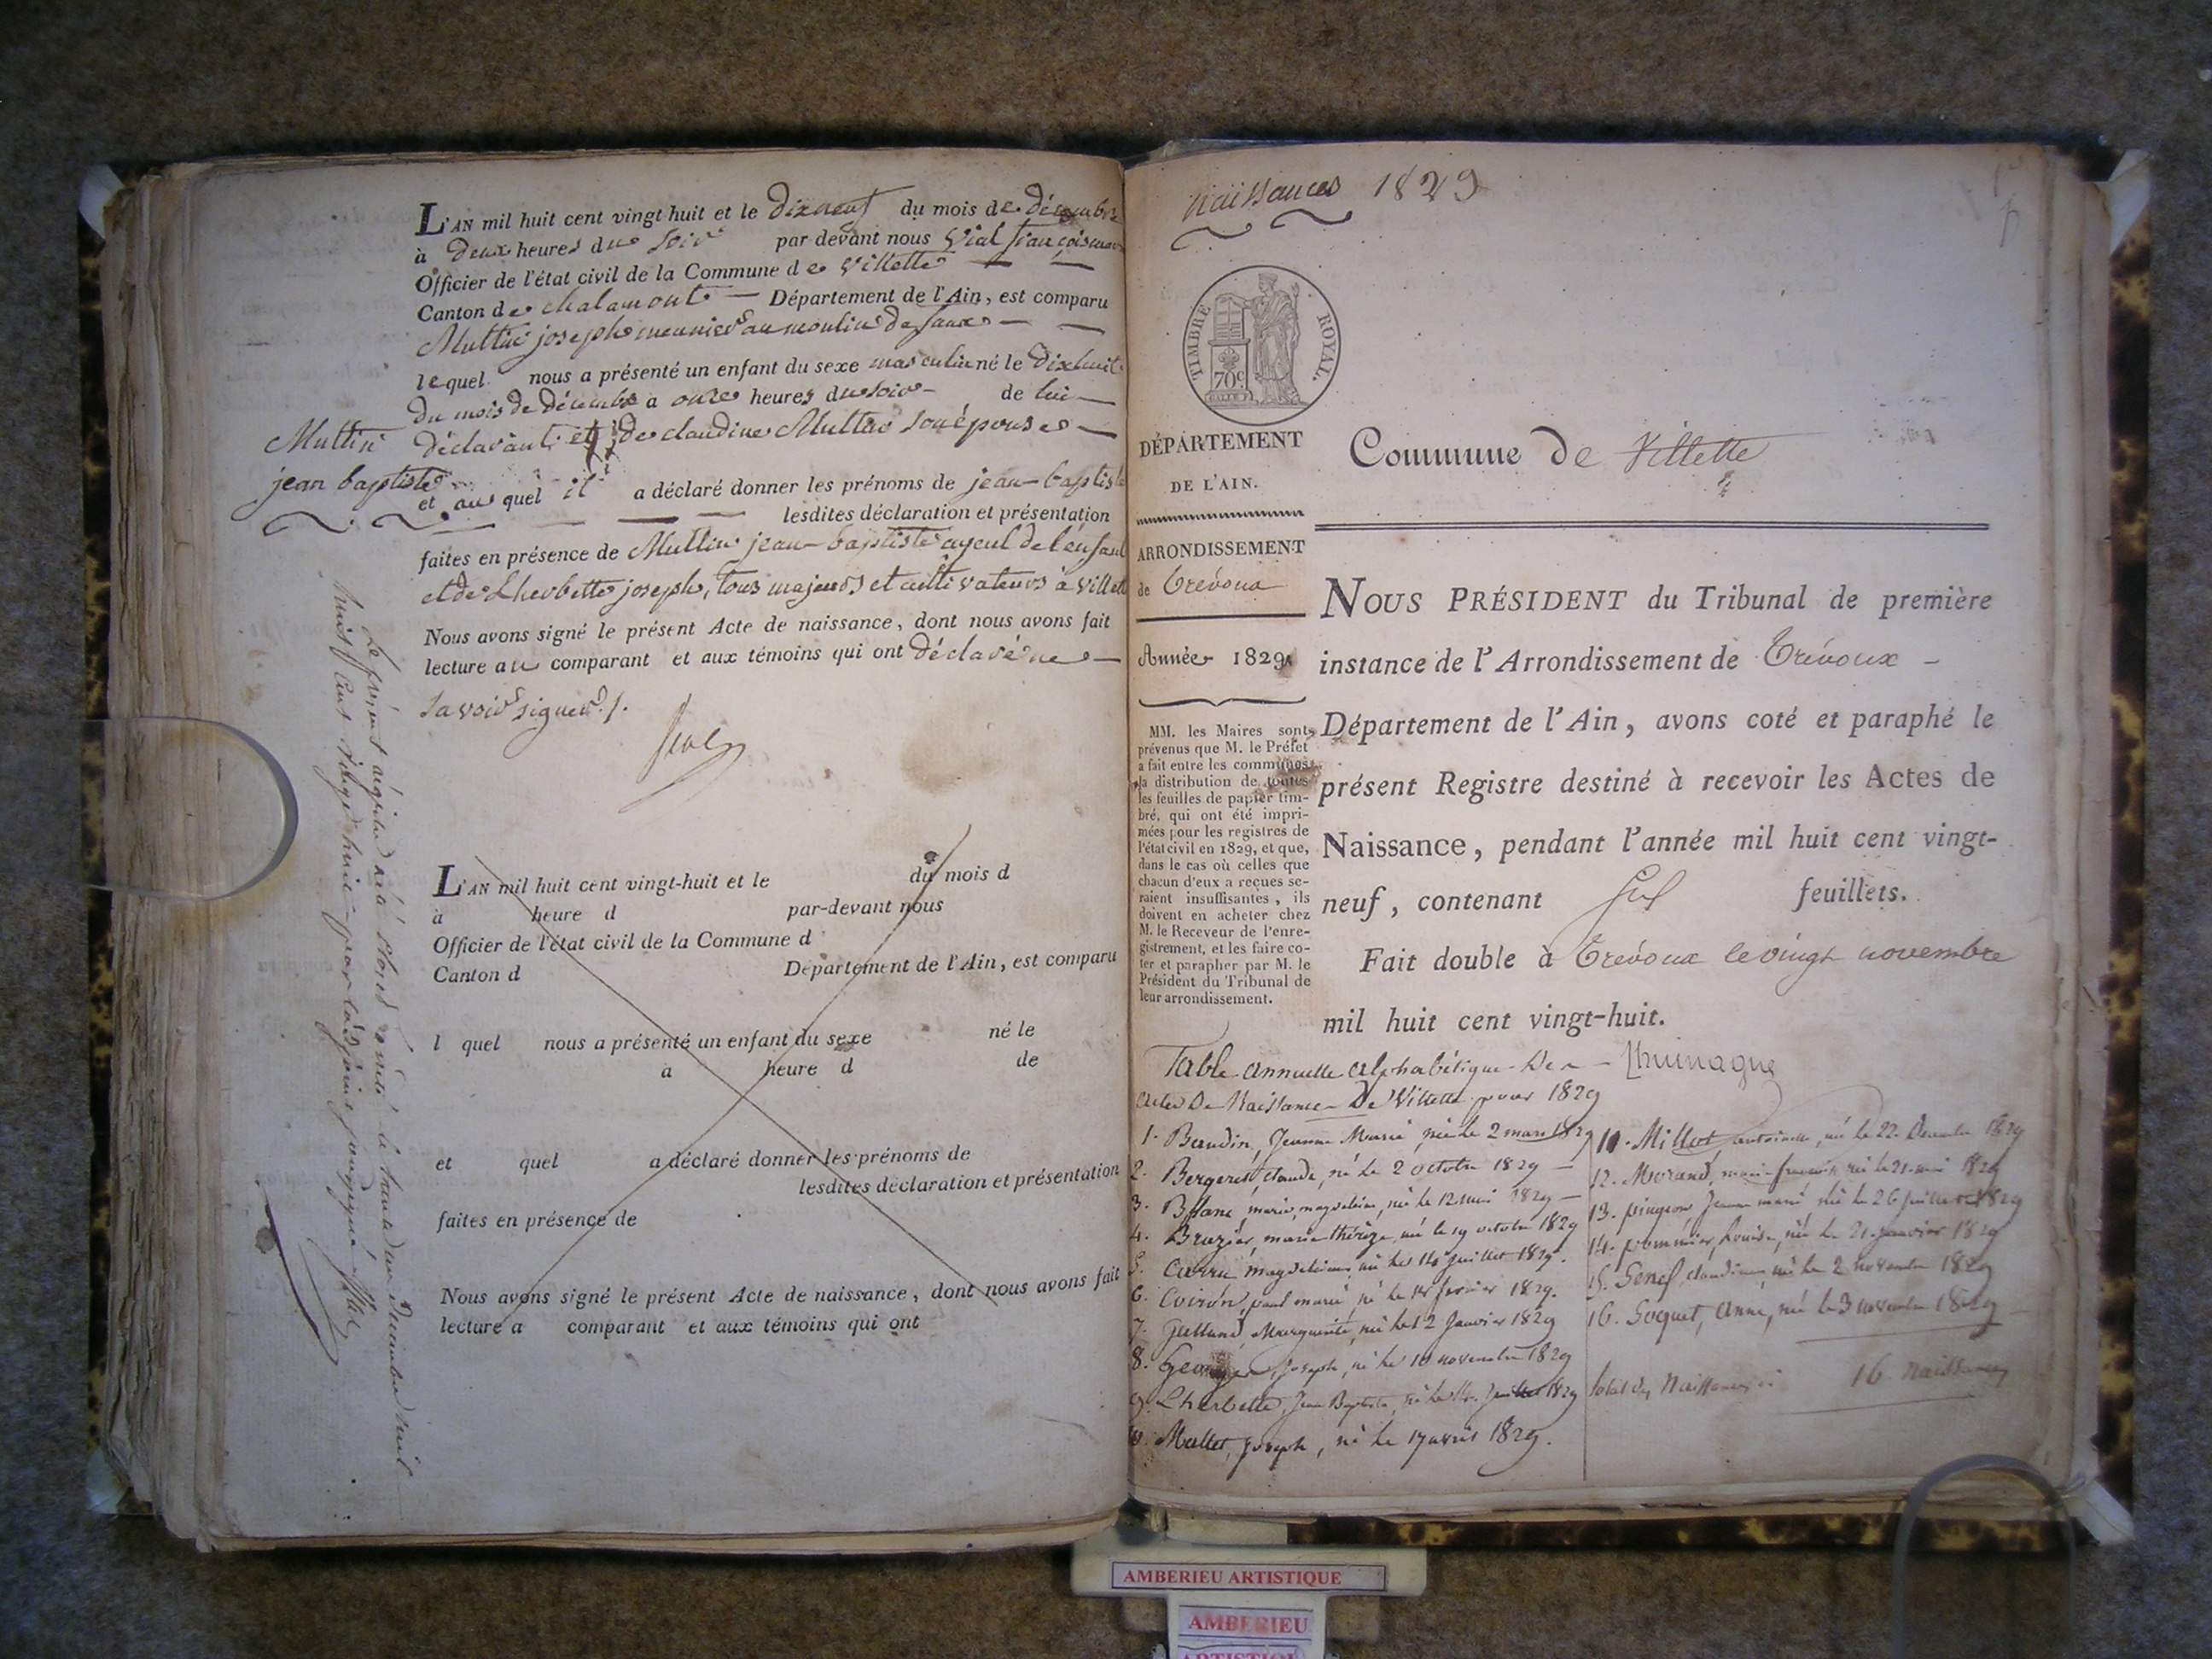 L'AN mil huit cent vingt huit et le dixneuf du mois de décembre
à deux heures du soir par devant nous Vial françois marie
Officier de l'état civil de la Commune de Villette
Canton de chalamont — Département de l'Ain, est comparu
Multin joseph meunier au moulin de
lequel nous a présenté un enfant du sexe masculin né le dixhuit
du mois de décembre à onze heures du soir — de lui —
déclarant et de claudine son épouse —
Multin
jean baptiste
et auquel il a déclaré donner les prénoms de jean-baptiste
lesdites déclaration et présentation
faites en présence de Multin jean-baptiste ayeul de l'enfant
et de Lherbette joseph, tous majeurs et cultivateurs à villette
Nous avons signé le présent Acte de naissance, dont nous avons fait
lecture au comparant et aux témoins qui ont déclaré ne —
savoir signer ./.
Vial
L'AN mil huit cent vingt-huit et le du mois d
à heure d par-devant nous
Officier de l'état civil de la Commune d
Canton d Département de l'Ain, est comparu
l quel nous a présenté un enfant du sexe né le
à heure d de
et quel a déclaré donner les prénoms de
lesdites déclaration et présentation
faites en présence de
Nous avons signé le présent Acte de naissance, dont nous avons fait
lecture a comparant et aux témoins qui ont
Le présent régistre a été clos et arrêté le trente un décembre mil
huit cent vingt huit par nous
Naissances 1829
TIMBRE ROYAL.
70c
DÉPARTEMENT
DE L'AIN.
ARRONDISSEMENT
de Trévoux
Année 1829
MM. les Maires sont
prévenus que M. le Préfet
a fait entre les communes
la distribution de toutes
les feuilles de papier tim-
bré, qui ont été impri-
mées pour les registres de
l'état civil en 1829, et que,
dans le cas où celles que
chacun d'eux a reçues se-
raient insuffisantes, ils
doivent en acheter chez
M. le Receveur de l'enre-
gistrement, et les faire co-
ter et parapher par M. le
Président du Tribunal de
leur arrondissement.
Commune de Villette
NOUS PRÉSIDENT du Tribunal de première
instance de l'Arrondissement de Trévoux —
Département de l'Ain, avons coté et paraphé le
présent Registre destiné à recevoir les Actes de
Naissance, pendant l'année mil huit cent vingt-
neuf, contenant feuillets.
Fait double à Trévoux le vingt novembre
mil huit cent vingt-huit.
Table annuelle alphabétique des
actes de Naissance de Villette pour 1829
1. Baudin, Jeanne Marie née le 2 mars 1829
2. Bergeret, claude, né le 2 octobre 1829 —
3. Blanc marie magdeleine, née le 12 mai 1829 —
4. Bruzier, marie thérèze, née le 19 octobre 1829
5. Carru magdeleine née le 14 juillet 1829.
6. Coiron, paul marie né le fevrier 1829.
7. Marguerite, née le 12 Janvier 1829
8. Joseph, né le 10 novembre 1829
9. Lherbette, Jean Baptiste, né le juillet 1829
10. Mallet, joseph, né le 17 avril 1829.
11. Millet antoinette, née le 22 Decembre 1829
12. Morand, marie née le 21 mai 1829
13. pingeon Jeanne marie née le 26 juillet 1829
14. pommier, Louise, née le 21 janvier 1829
15. claudine, née le 2 novembre 1829
16. Goquet, Anne, née le 3 novembre 1829
total des Naissances 16 naissances
AMBERIEU ARTISTIQUE
AMBERIEU
ARTISTIQUE